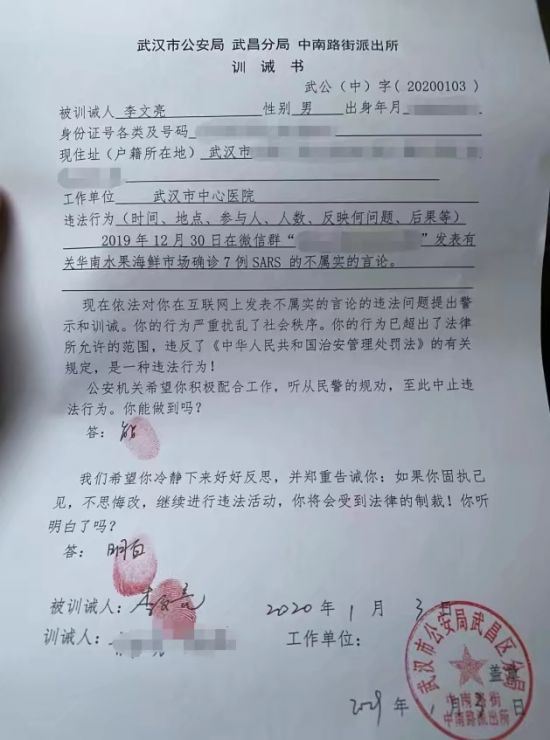 武汉市公安局 武昌分局 中南路街派出所
训诫书
武公（中）字（20200103）
被训诫人 李文亮 性别 男 出身年月
身份证号各类及号码
现住址（户籍所在地） 武汉市
工作单位 武汉市中心医院
违法行为（时间、地点、参与人、人数、反映何问题、后果等）
2019年12月30日在微信群“ ”发表有
关华南水果海鲜市场确诊7例SARS的不属实的言论。
现在依法对你在互联网上发表不属实的言论的违法问题提出警
示和训诫。你的行为严重扰乱了社会秩序。你的行为已超出了法律
所允许的范围，违反了《中华人民共和国治安管理处罚法》的有关
规定，是一种违法行为！
公安机关希望你积极配合工作，听从民警的规劝，至此中止违
法行为。你能做到吗？
答：能
我们希望你冷静下来好好反思，并郑重告诫你：如果你固执己
见，不思悔改，继续进行违法活动，你将会受到法律的制裁！你听
明白了吗？
答：明白
被训诫人：李文亮 2020年1月3日
训诫人： 工作单位：
武汉市公安局武昌区分局
盖章
中南路街
中南路派出所
年1月3日